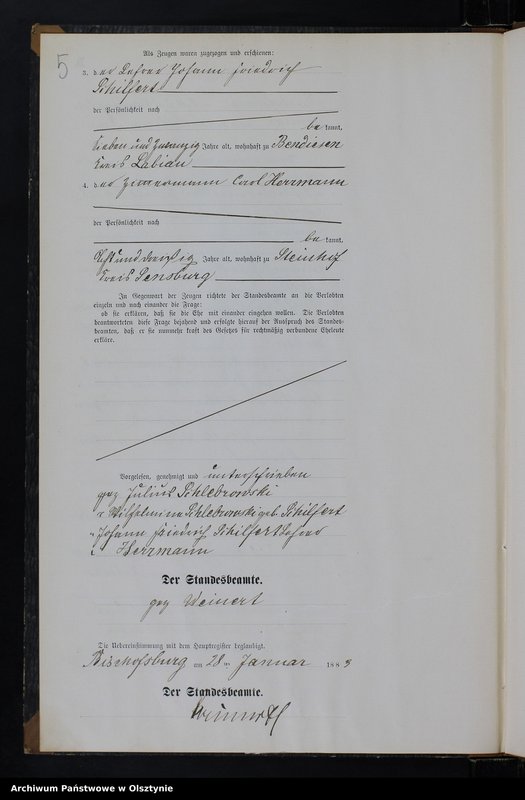 5
Als Zeugen waren zugezogen und erschienen:
3. der Lehrer Johann Friedrich
Schilfert
der Persönlichkeit nach
bekannt,
sieben und zwanzig Jahre alt, wohnhaft zu Bendiesen
Kreis Labiau
4. der Zimmermann Carl Herrmann
der Persönlichkeit nach
bekannt,
und dreißig Jahre alt, wohnhaft zu Steinhof
Kreis Sensburg
In Gegenwart der Zeugen richtete der Standesbeamte an die Verlobten
einzeln und nach einander die Frage:
ob sie erklären, daß sie die Ehe mit einander eingehen wollen. Die Verlobten
beantworteten diese Frage bejahend und erfolgte hierauf der Ausspruch des Standes-
beamten, daß er sie nunmehr kraft des Gesetzes für rechtmäßig verbundene Eheleute
erkläre.
Vorgelesen, genehmigt und unterschrieben
gez Julius Schlebrowski
" Wilhelmine Schlebrowski geb. Schilfert
" Johann Friedrich Schilfert Lehrer
" Herrmann
Der Standesbeamte.
gez Weinert
Die Uebereinstimmung mit dem Hauptregister beglaubigt.
Bischofsburg am 28 ten Januar 1883
Der Standesbeamte.
Weinert
Archiwum Państwowe w Olsztynie